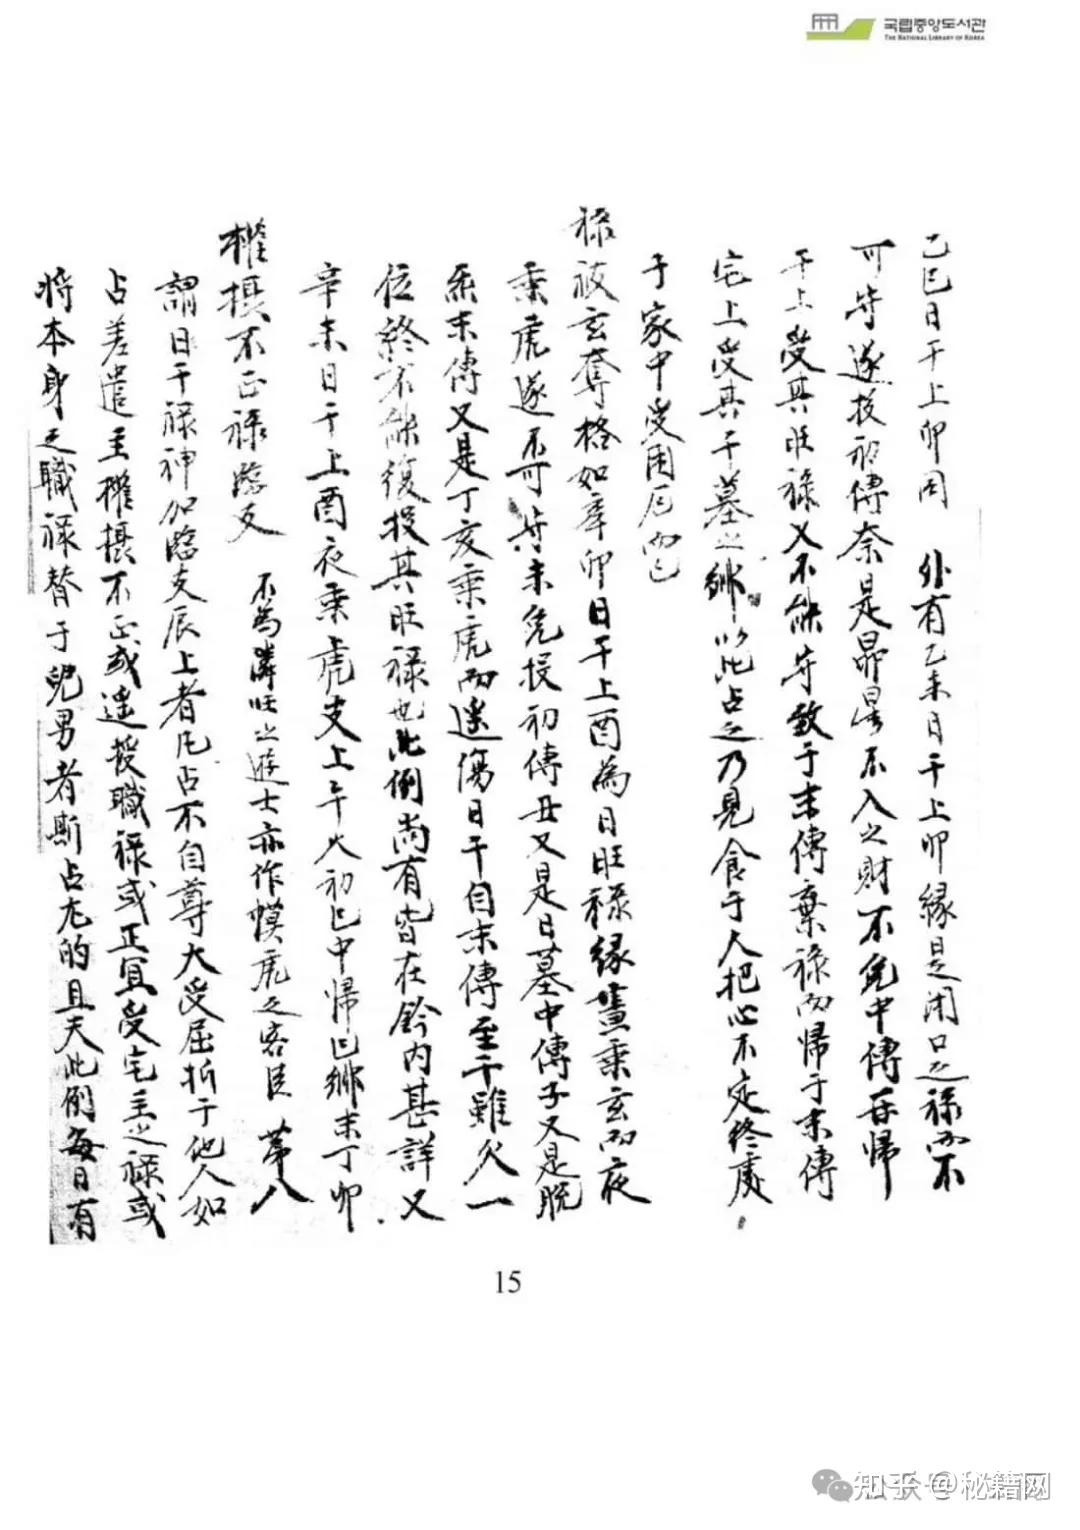 국립중앙도서관
THE NATIONAL LIBRARY OF KOREA
乙巳日干上卯同 外有乙未日干上卯縁是闭口之禄而不
可守遂投初傳奈是昴星不入之財不免中傳并歸
干上受其旺禄又不能守致于末傳棄禄而歸于末傳
宅上受其干墓之鄉以此占之乃見食于人把心不定終處
于家中受用后而已
禄被玄奪格如辛卯日干上酉為日旺禄縁晝乘玄而夜
乘虎遂不可守未免投初傳丑又是日墓中傳子又是脱
炁末傳又是丁亥乘虎而遥傷日干自末傳至干雖欠一
位終不能復投其旺禄也此例尚有皆在鈐内甚詳又
辛未日干上酉夜乘虎支上午火初巳中歸巳鄉末丁卯
權摄不正禄臨支 不為隣旺之遊士亦作模虎之客臣 第八
謂日干禄神加臨支辰上者凡占不自尊大受屈折于他人如
占差遣主權摄不正或遥授職禄或正宜受宅主之禄或
將本身之職禄替于兒男者斯占尤的且夫此例每日有
15
知乎 @秘籍网